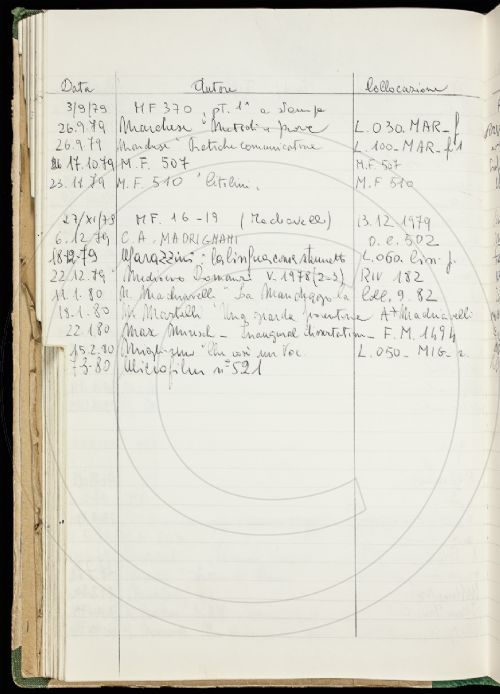 Data Autore Collocazione
3/9/79 MF 370 pt. 1ª a stampa
26.9.79 Marchese "Metodi e prove L.030.MAR-f
26.9.79 Marchese "Pratiche comunicative L.100-MAR-f1
17.10 79 M.F. 507 M.F. 507
23.11.79 M.F. 510 M.F 510
27/XI/79 MF. 16-19 (Machiavelli) 13.12 1979
6.12.79 C.A. MADRIGNANI O.e.502
18.12.79 Marazzini: la lingua come strumento L.060.
22.12.79 Medioevo Romanzo V. 1978(2-3) RIV 182
11.1.80 N. Machiavelli "La Mandragola Coll. 9.82
18.1.80 M. Martelli "Una giarda fiorentina A+Machiavelli
22.1.80 Max - Inaugural dissertation F.M. 1494
15.2.80 Migliorini "Che cos'è un Voc. L.050-MIG-
7.3.80 Microfilm n° 521